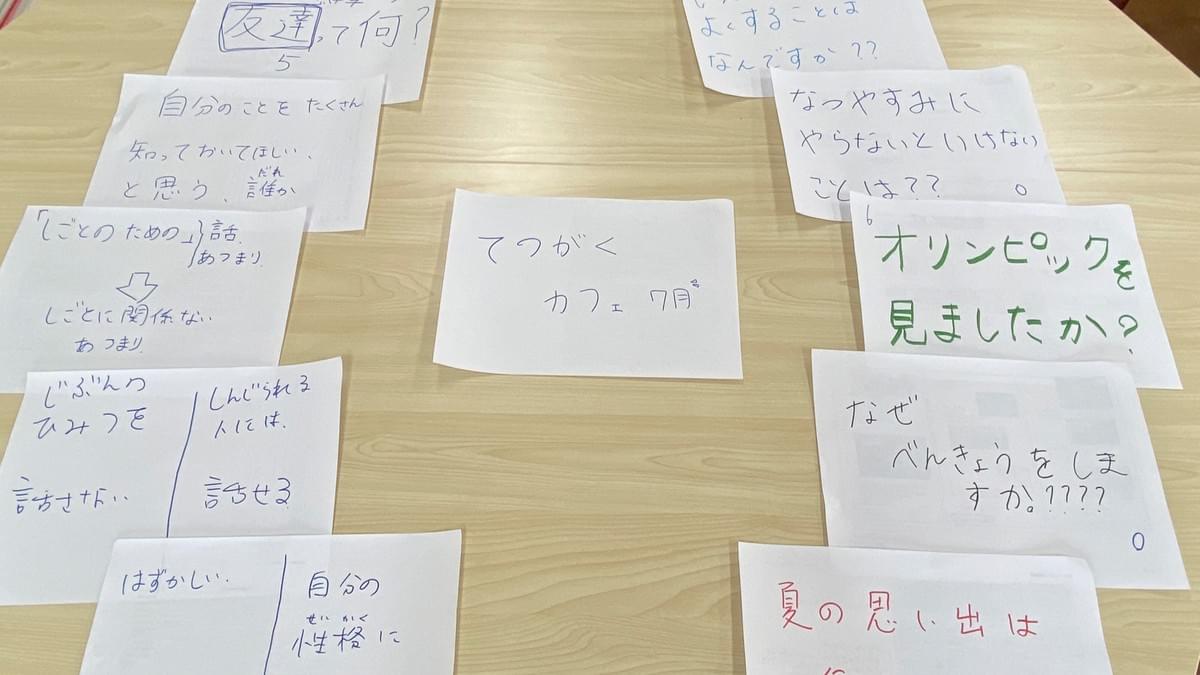 友達って何?
5
自分のことを たくさん
知っておいてほしい、
と思う、誰か
だれ
「しごとのための」}話
あつまり
しごとに関係ない
あつまり
じぶんの
ひみつを
話さない
しんじられる
人には、
話せる
はずかしい、
自分の
せいかく
性格に
てつがく
カフェ 7月
よくすることは
なんですか??
なつやすみに
やらないといけない
ことは??
0
6
オリンピックを
見ましたか?
なぜ
べんきょうをしま
すか。????
0
夏の思い出は